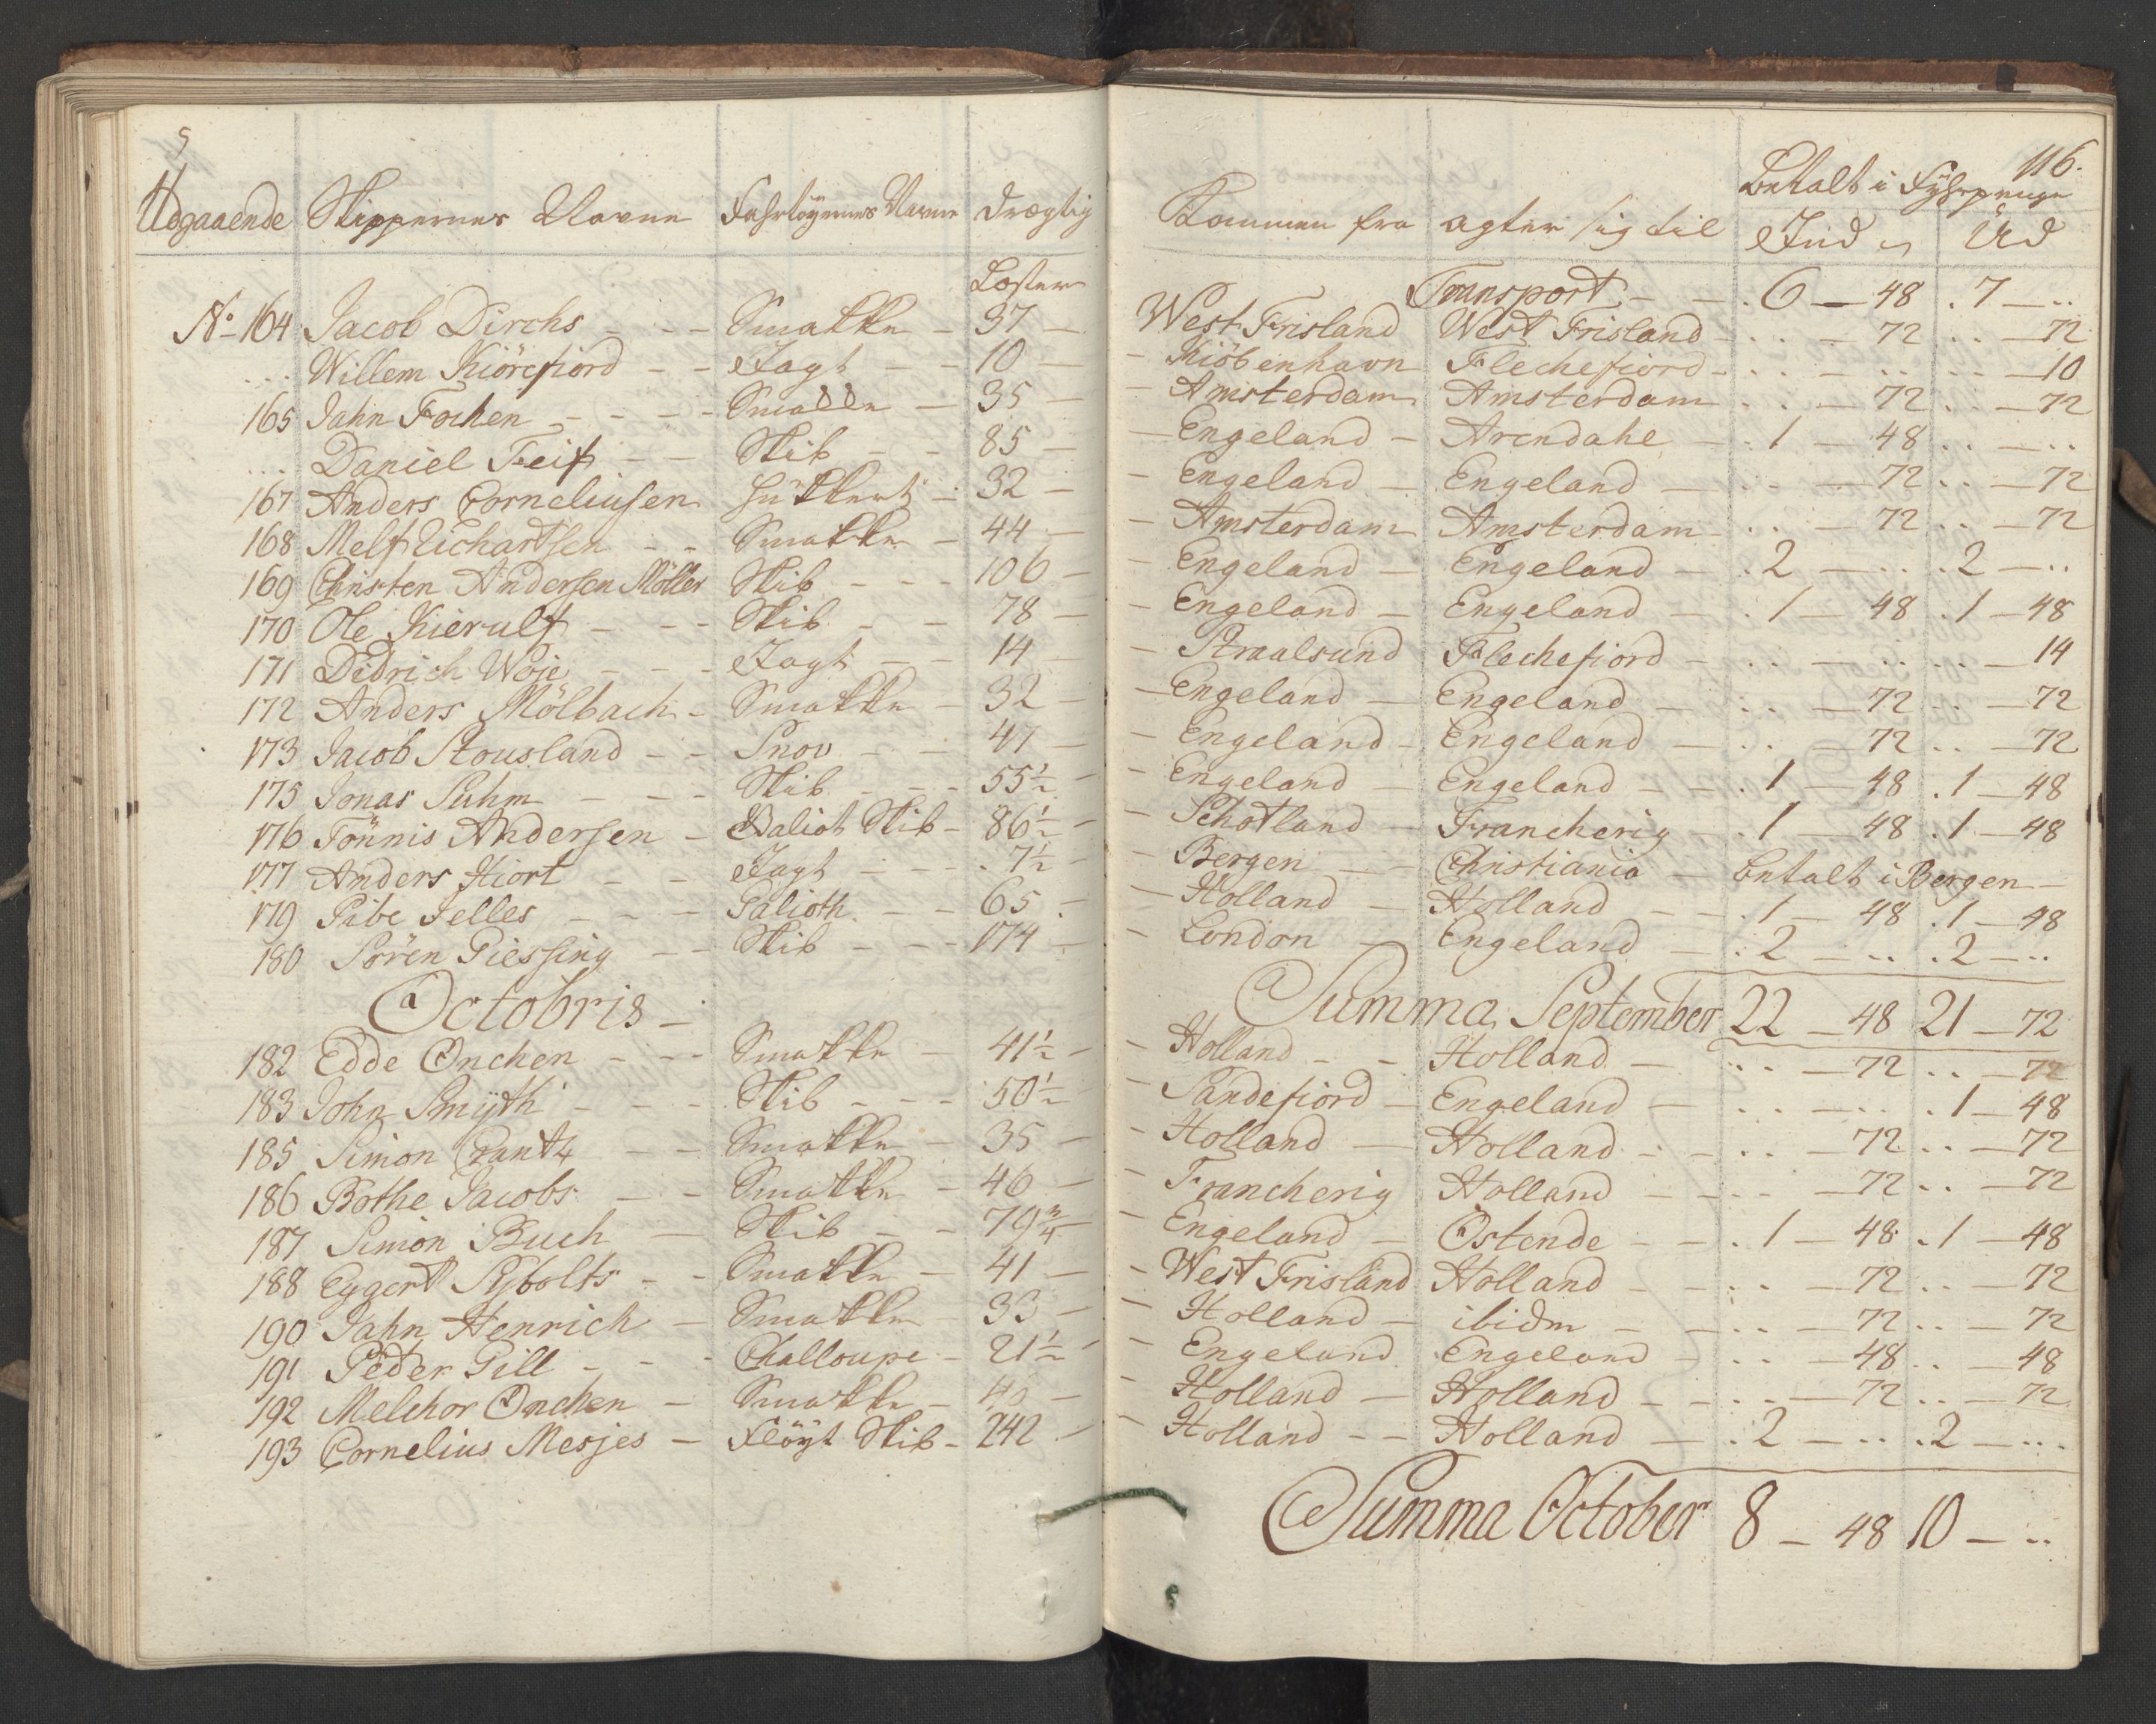 116.
Betalt i Fyhrpenge
Udgaaende Skippernes Navne Fahrtöyernes Navne Drægtig Kommen fra agter sig til Ind Ud
Læster Transport - - . 6 - 48 . 7 - ..
No 164 Jacob Dirchs - - - Smakke - 37 - West Frisland West Frisland - .. - 72 .. - 72
... Willem Kiörefiord - - Jagt - - 10 - Kiöbenhavn Flechefiord - .. - .. .. - 10
165 Jahn Fochen - - - - Smakke - 35 - Amsterdam Amsterdam .. - 72 .. - 72
... Daniel Feif - - Skib - - 85 - Engeland - Arendahl - . 1 - 48 .. - ..
167 Anders Corneliusen Hukkert - 32 - Engeland - Engeland - .. - 72 .. - 72
168 Melf Richardtsen - - Smakke - 44 - Amsterdam Amsterdam - .. - 72 .. - 72
169 Christen Andersen Möller Skib - - - 106 - Engeland - Engeland - . 2 - .. . 2 - ..
170 Ole Kierulf - - - Skib - - 78 - Engeland - Engeland - . 1 - 48 . 1 - 48
171 Didrich Woje - - - Jagt - - 14 - Straalsund Flechefiord - .. - .. .. - 14
172 Anders Mölbach - Smakke - 32 - Engeland - Engeland - .. - 72 .. - 72
173 Jacob Stousland - - Snov - - 47 - Engeland - Engeland - .. - 72 .. - 72
175 Jonas Suhm - - - Skib - - - 55½ - Engeland - Engeland - - . 1 - 48 . 1 - 48
176 Tönnis Andersen - Galiot Skib - 86½ - Schotland - Francherig - . 1 - 48 . 1 - 48
177 Anders Hiort - - Jagt - - - . 7½ - Bergen - - Christiania - betalt i Bergen -
179 Sibe Jelles - - - Galioth - - 65 - Holland - Holland - - . 1 - 48 . 1 - 48
180 Sören Giessing - - Skib - - - 174 - London - Engeland - . 2 - .. . 2 - ..
Octobris - Summa September 22 - 48 21 - 72
182 Edde Onchen - - - Smakke - 41½ - Holland - - Holland - .. - 72 .. - 72
183 John Smÿth - - - Skib - - - 50½ - Sandefiord - Engeland - .. - .. . 1 - 48
185 Simon Crantz - - Smakke - 35 - Holland - Holland - - .. - 72 .. - 72
186 Bothe Jacobs - - Smakke - 46 - Francherig Holland - - .. - 72 .. - 72
187 Simon Buch - Skib - - 79¾ - Engeland - Ostende - - . 1 - 48 . 1 - 48
188 Eggert Sybolts - - Smakke - 41 - West Frisland Holland - - .. - 72 .. - 72
190 Jahn Henrich - Smakke - 33 - Holland - ibidm - - .. - 72 .. - 72
191 Peder Gill - - - Challoupe - 21½ - Engeland Engeland - .. - 48 .. - 48
192 Melchor Onchen - Smakke - 40 - Holland - Holland - - .. - 72 .. - 72
193 Cornelius Mesjes - Flöyt Skib - 242 - Holland - - Holland - . 2 - .. . 2 - ...
Summa October 8 - 48 10 - ..